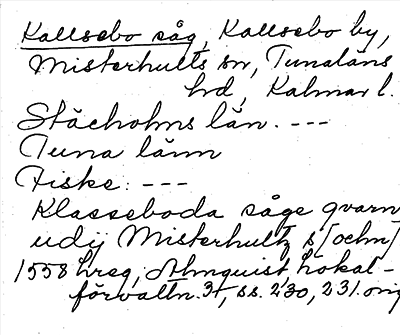 Kallsebo såg, Kallsebo by,
Misterhults sn, Tunaläns
hd, Kalmar l.
Stächolms län. ---
Tuna länn
Fiske: ---
Klasseboda såge qvarn
udij Misterhultz s[ochn]
1558 hreg, Almquist, Lokal-
förvaltn. 3t, ss. 230, 231. orig